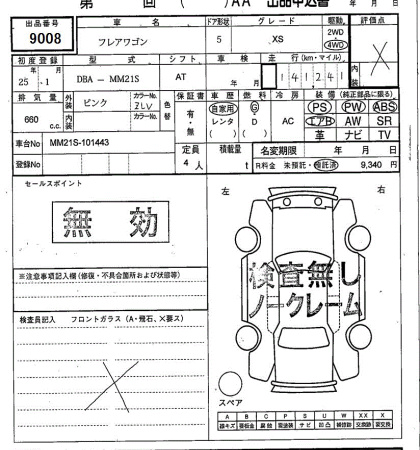 第 回 ( )AA 出品申込書 年 月 日
出品番号 車名 ドア形状 グレード 駆動 評価点
9008 フレアワゴン 5 XS 2WD 4WD
初度登録 型式 シフト 車検 走行(km・マイル) 内装
25年 .1 DBA - MM21S AT 年 月 141241
排気量 外装 ピンク カラーNo. ZLV 色替 保証書 車歴 燃料 冷房 装備(純正部品に限る)
660 c.c. 内装 カラーNo. 有・無 自家用 レンタ ( ) G・D ( ) AC PS PW ABS
エアB AW SR
革 ナビ TV
車台No MM21S-101443 定員 積載量 名変期限 年 月 日
登録No 4人 t R料金 未預託・預託済 9,340 円
セールスポイント
無 効
左 右
※注意事項記入欄(修復・不具合箇所および状態等)
検査無し
ノークレーム
検査員記入 フロントガラス(A・飛石、X要ス)
スペア
A B C P S U W XX X
線キズ 要板金 腐蝕 要塗装 サビ 凹凸 補修跡 交換跡 要交換